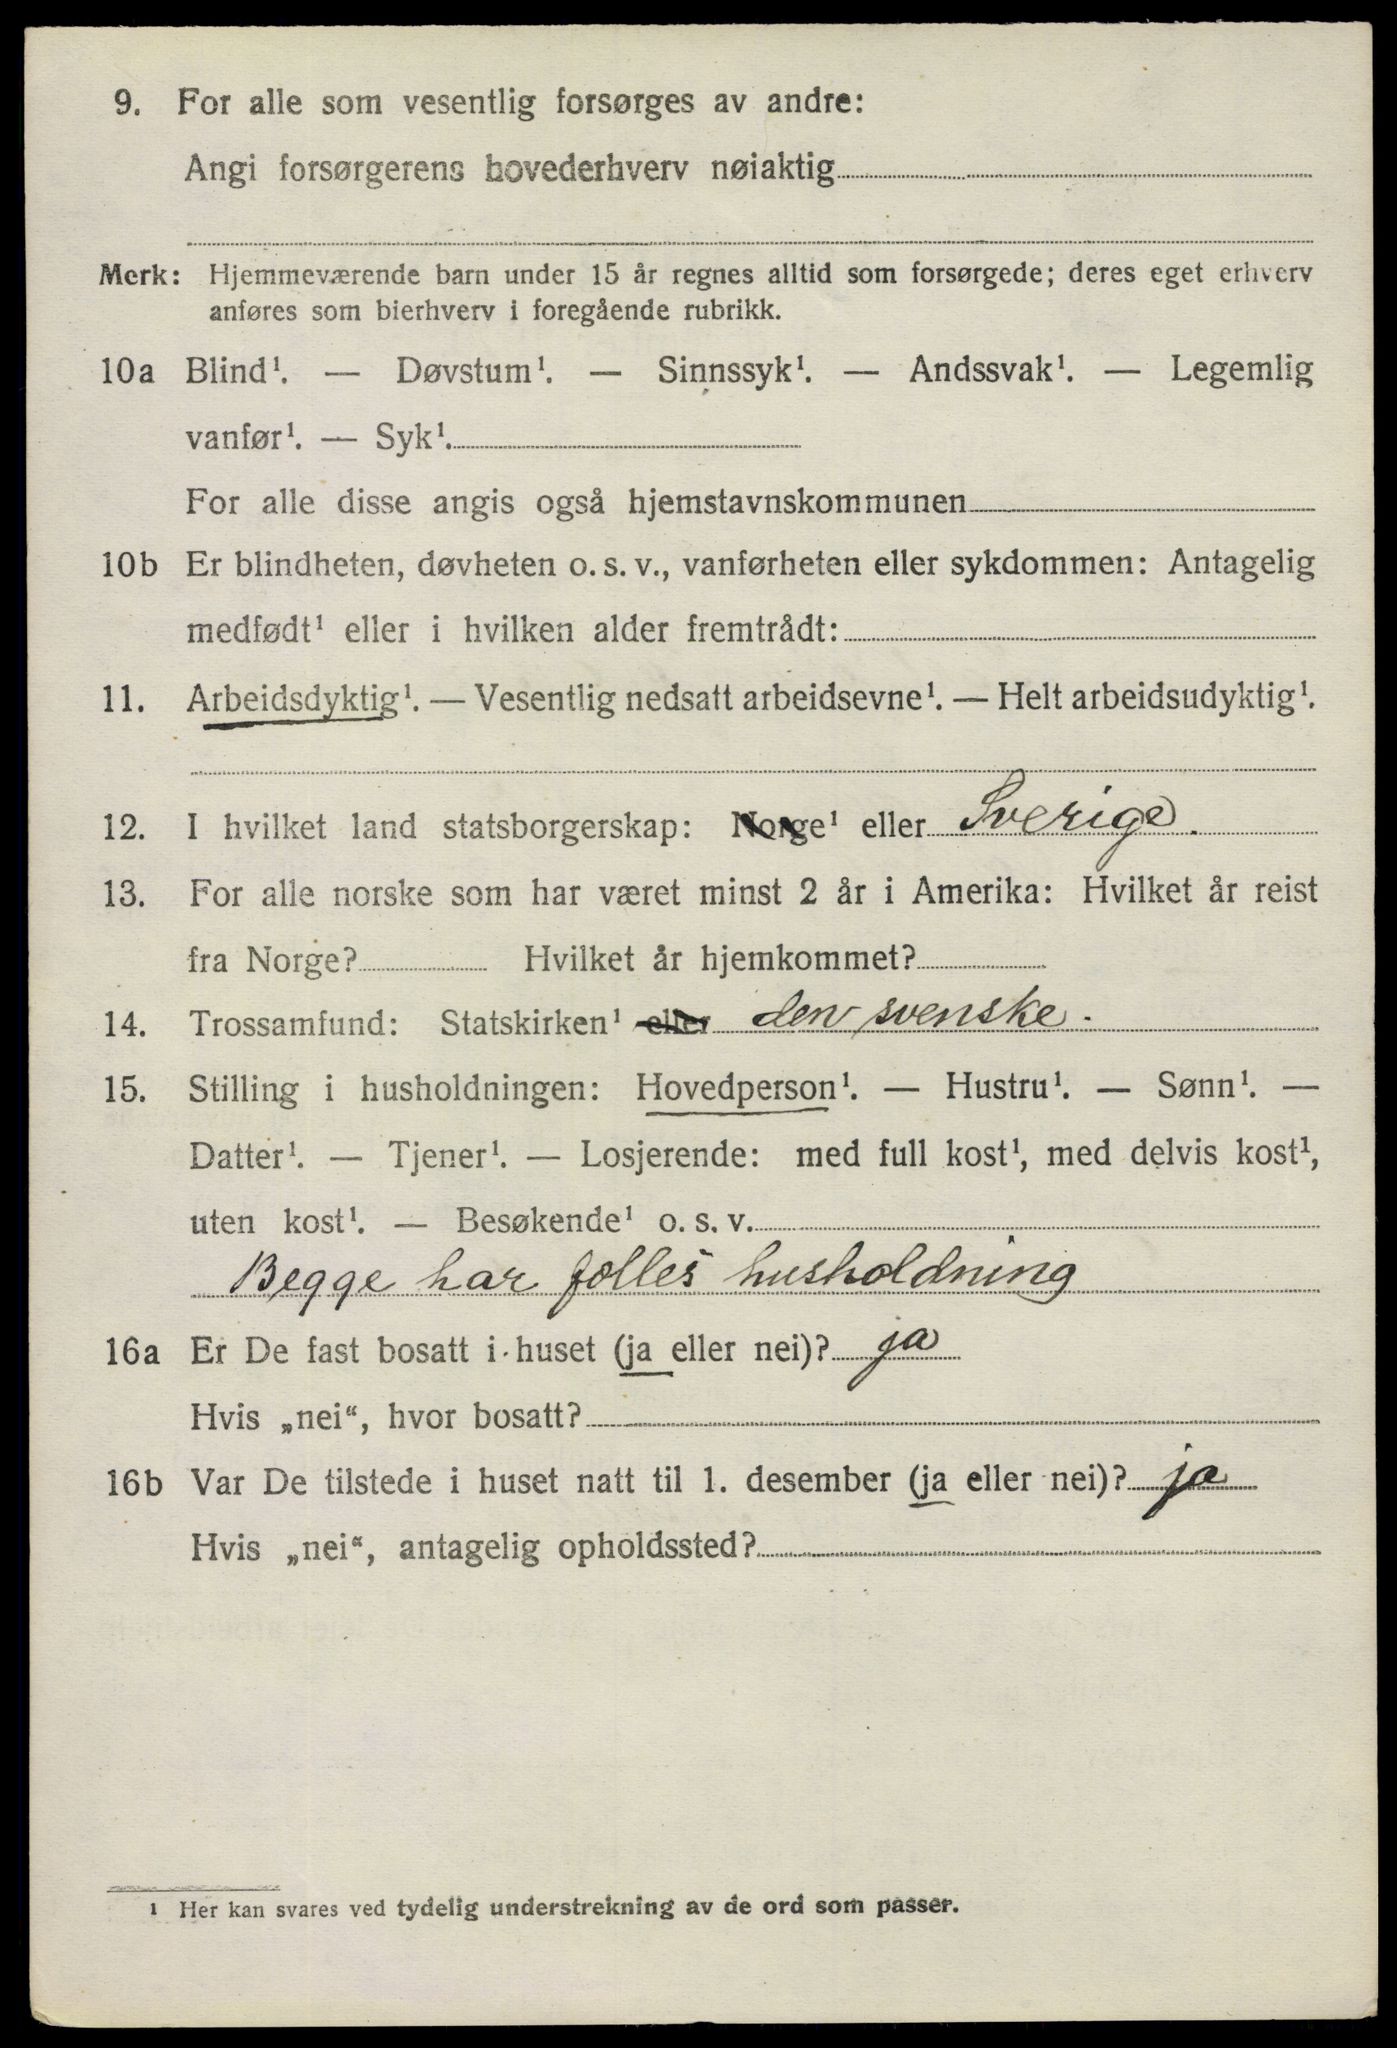 9. For alle som vesentlig forsørges av andre:
Angi forsørgerens hovederhverv nøiaktig
Merk: Hjemmeværende barn under 15 år regnes alltid som forsørgede; deres eget erhverv
anføres som bierhverv i foregående rubrikk.
10a Blind¹. — Døvstum¹. — Sinnssyk¹. — Andssvak¹. — Legemlig
vanfør¹. — Syk¹.
For alle disse angis også hjemstavnskommunen
10b Er blindheten, døvheten o. s. v., vanførheten eller sykdommen: Antagelig
medfødt¹ eller i hvilken alder fremtrådt:
11. Arbeidsdyktig¹. — Vesentlig nedsatt arbeidsevne¹. — Helt arbeidsudyktig¹.
12. I hvilket land statsborgerskap: Norge¹ eller Sverige.
13. For alle norske som har været minst 2 år i Amerika: Hvilket år reist
fra Norge? Hvilket år hjemkommet?
14. Trossamfund: Statskirken¹ eller den svenske.
15. Stilling i husholdningen: Hovedperson¹. — Hustru¹. — Sønn¹. —
Datter¹. — Tjener¹. — Losjerende: med full kost¹, med delvis kost¹,
uten kost¹. — Besøkende¹ o. s. v.
Begge har folles husholdning
16a Er De fast bosatt i huset (ja eller nei)? ja
Hvis „nei“, hvor bosatt?
16b Var De tilstede i huset natt til 1. desember (ja eller nei)? ja
Hvis „nei“, antagelig opholdssted?
1 Her kan svares ved tydelig understrekning av de ord som passer.